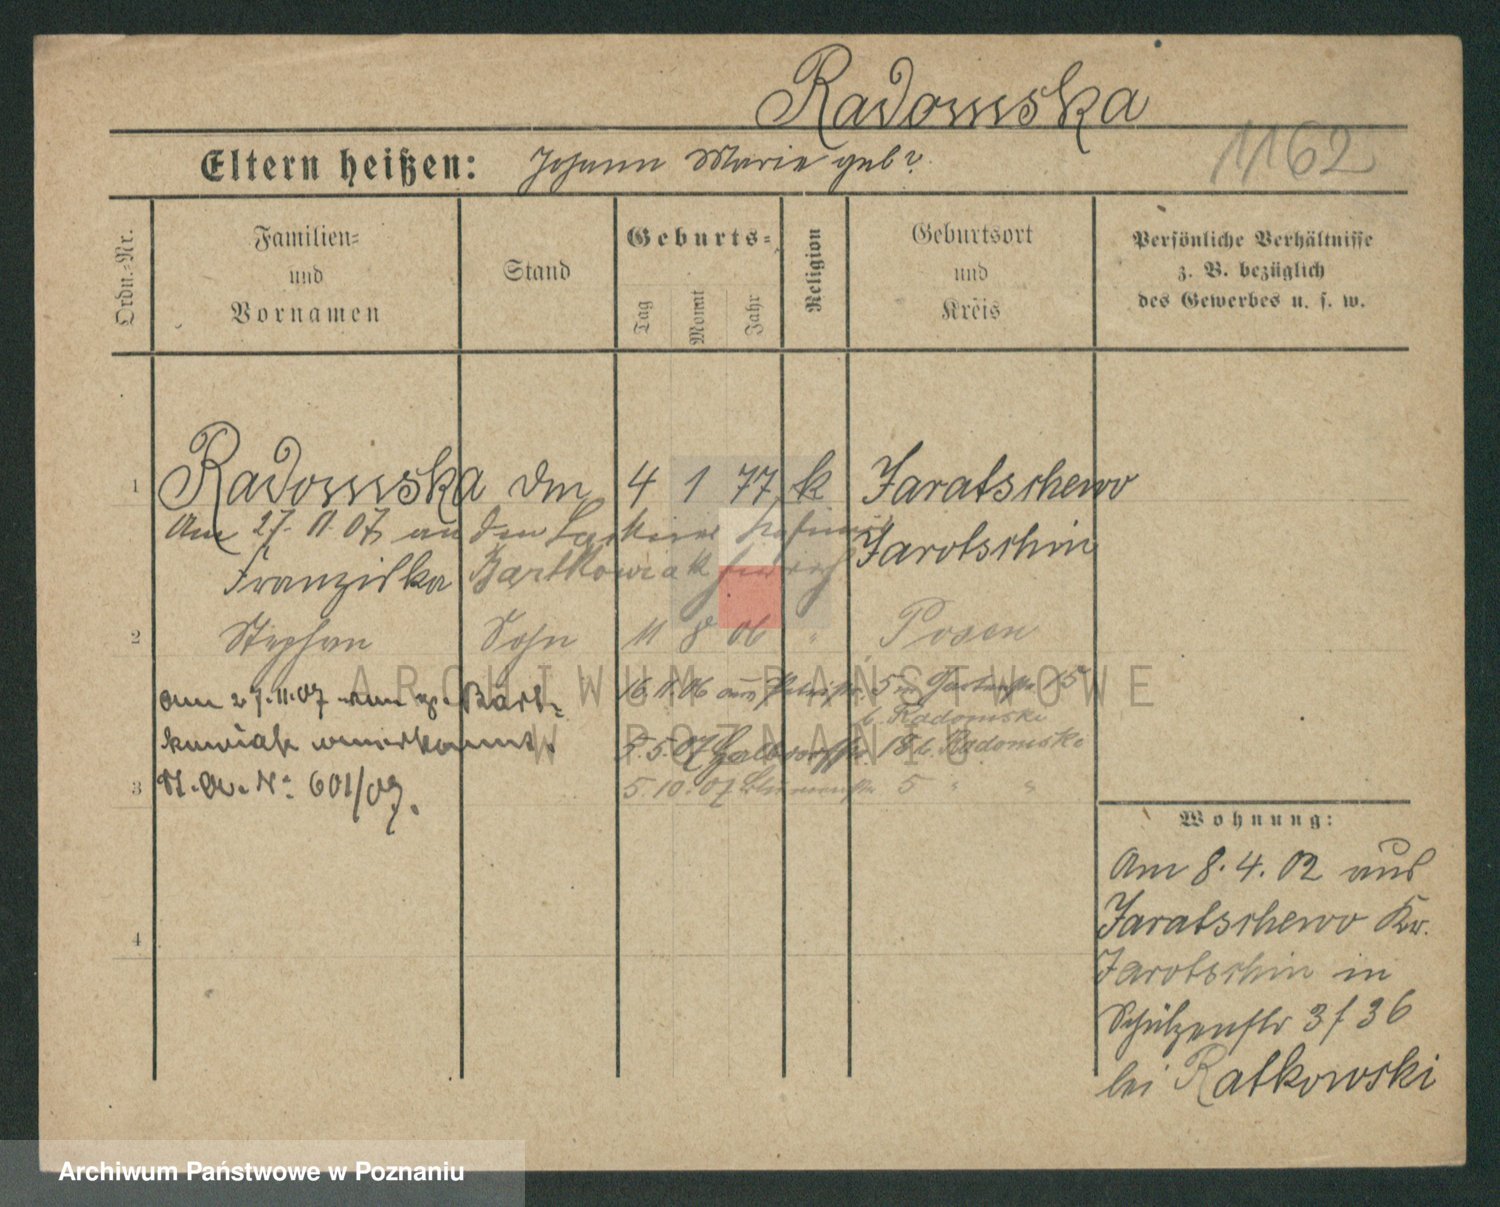 Radomska
Eltern heißen: Johann Marie geb ?
1162
Ordn.-Nr.
Familien-
und
Vornamen
Stand
Geburts-
Tag
Monat
Jahr
Religion
Geburtsort
und
Kreis
Persönliche Verhältnisse
z. B. bezüglich
des Gewerbes u. s. w.
1 Radomska 4 1 77 k Jaratschewo
Am 27. 11 07 an den
Jarotschin
Franziska Bartkowiak
2 Stephan Sohn 11 8 06 " Posen
ARCHIWUM PAŃSTWOWE
W POZNANIU
16. 11. 06 aus 5 15
b. Radomski
am 27. 11. 07 von Bart-
kowiak anerkannt.
5. 5. 07 18 b. Radomska
3 No 601/07.
5. 10. 07 5 " "
4
Wohnung:
Am 8. 4. 02 aus
Jaratschewo Kr.
Jarotschin in
Schützenstr 3 / 36
bei Ratkowski
Archiwum Państwowe w Poznaniu